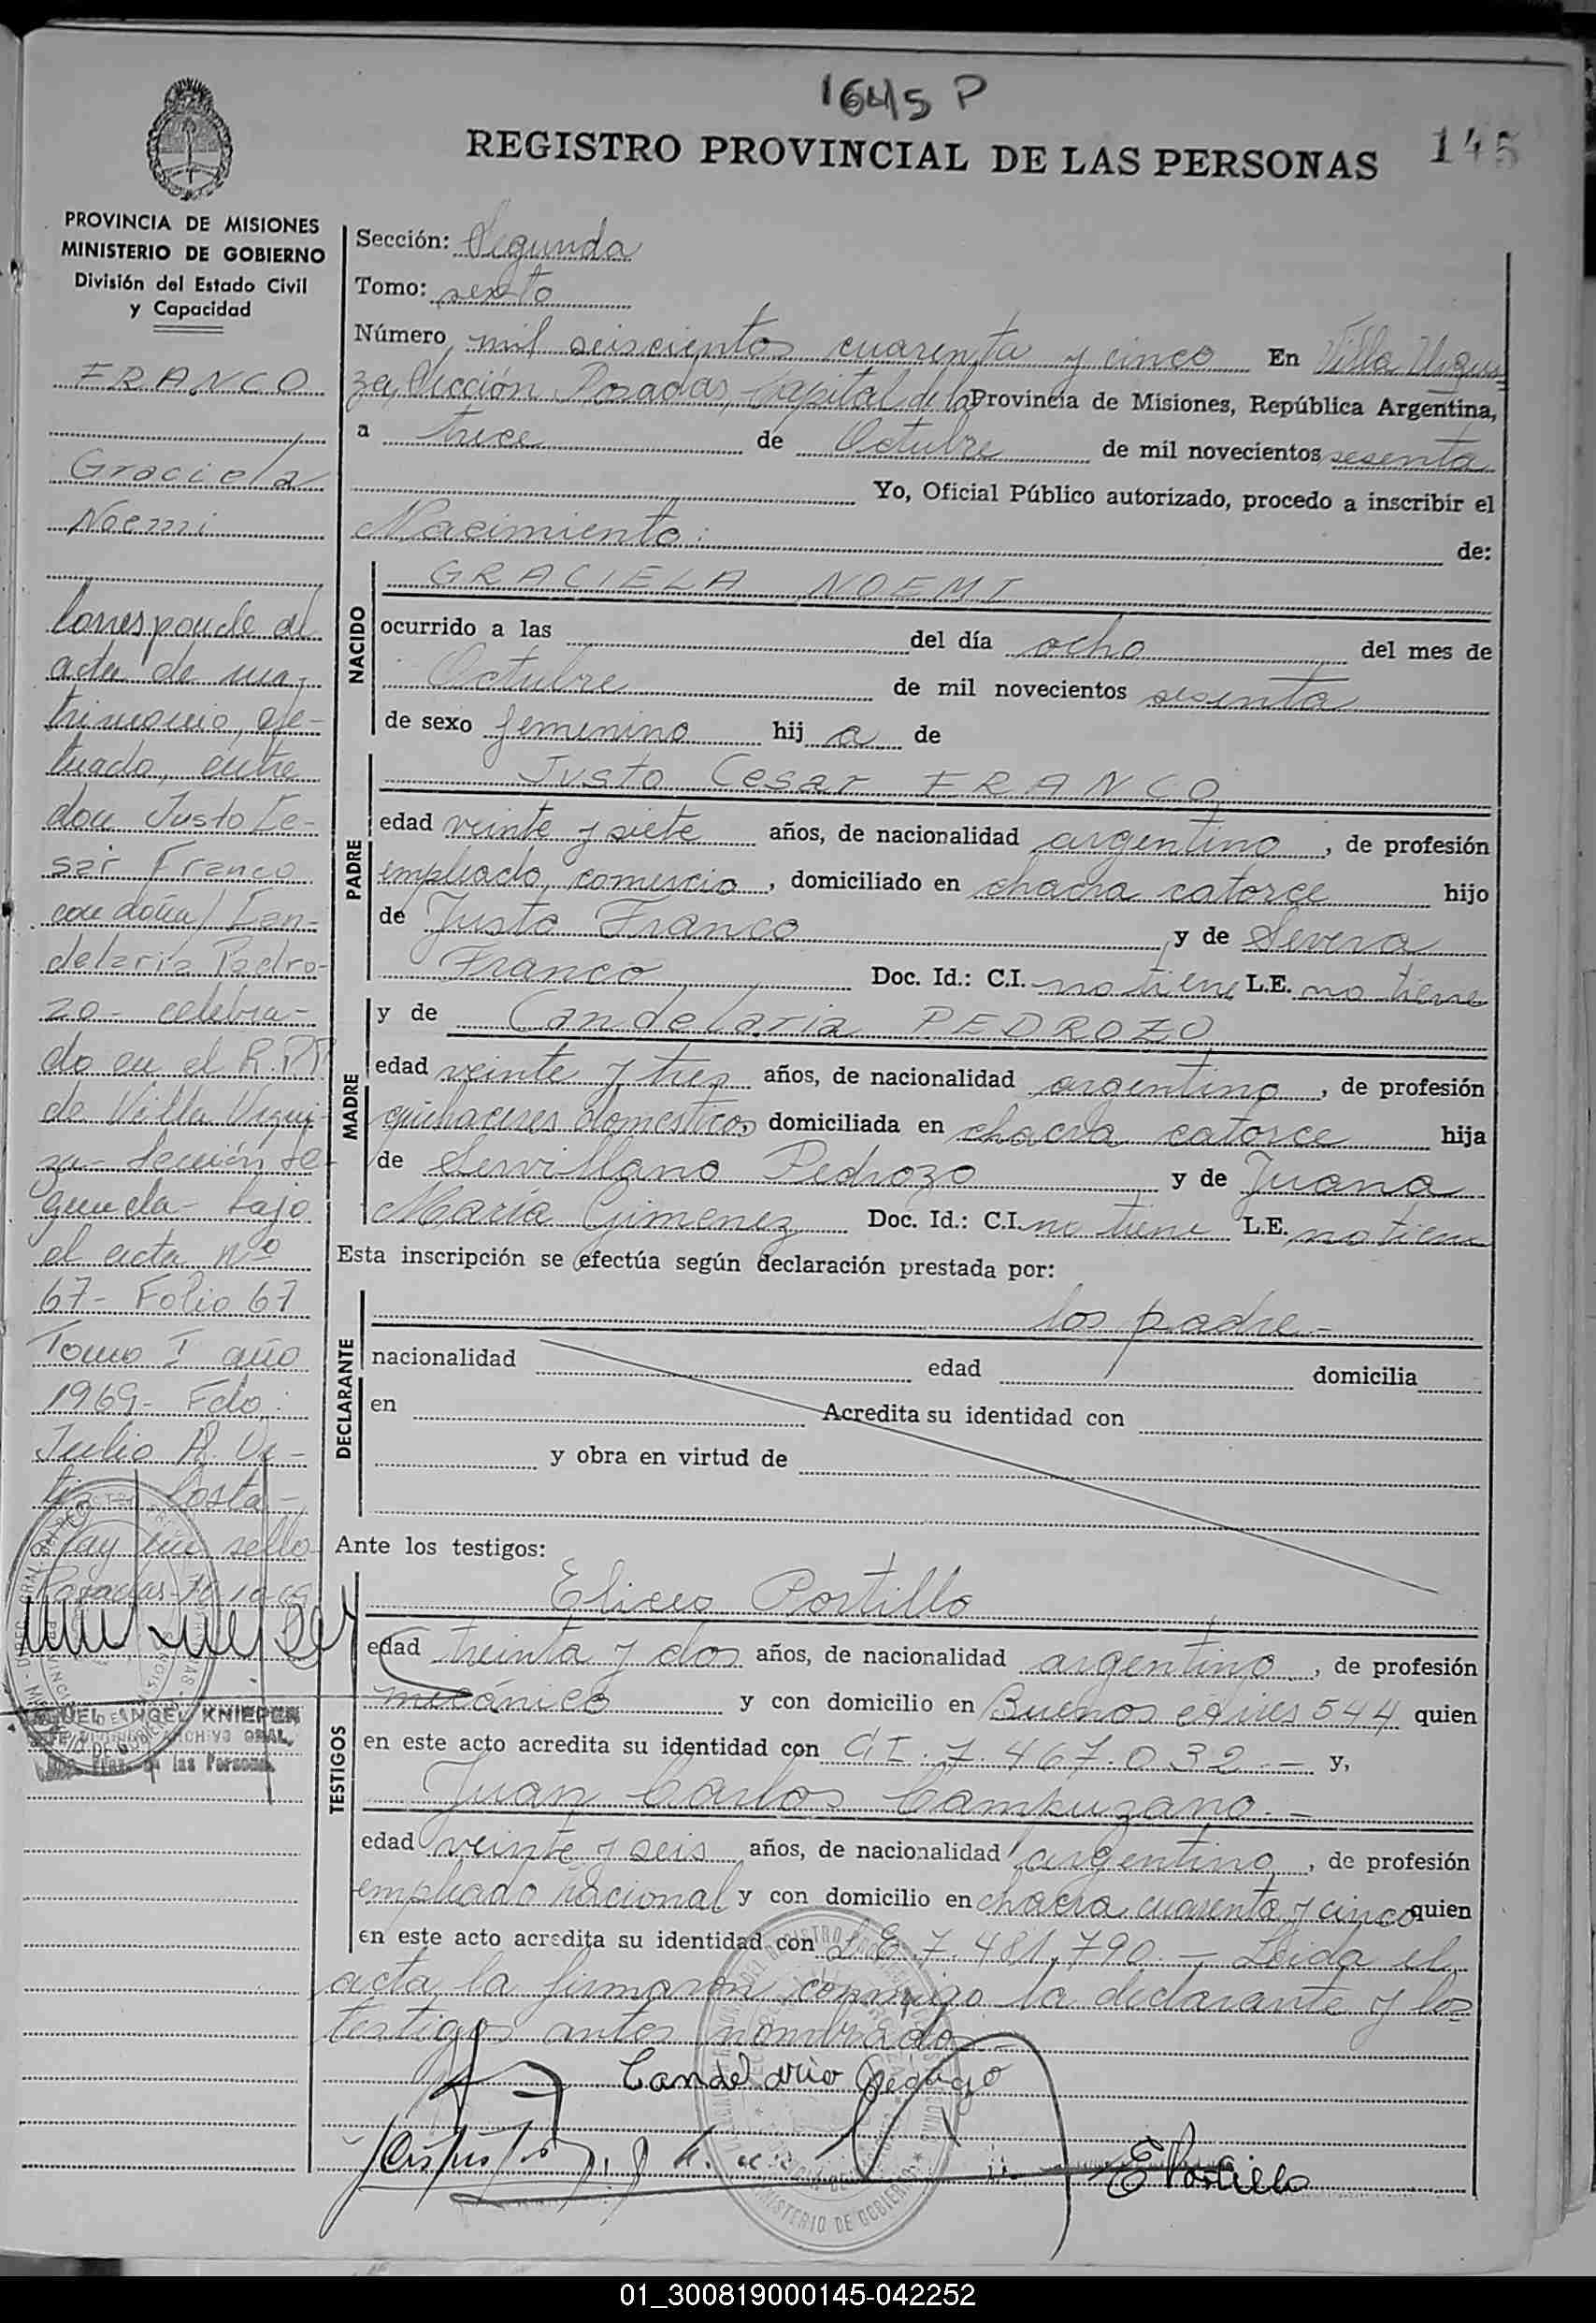 1645 P
REGISTRO PROVINCIAL DE LAS PERSONAS
145
PROVINCIA DE MISIONES
MINISTERIO DE GOBIERNO
División del Estado Civil
y Capacidad
FRANCO
Graciela
Noemi
Corresponde al
acta de ma-
trimonio, efe-
tuado, entre
don Justo Ce-
sar Franco
con doña Can-
delaria Pedro-
zo - celebra-
do en el R.P.P.
de Villa Urqui-
za - Sección Se-
gunda - bajo
el acta nº
67 - Folio 67
Tomo I año
1969 - Fdo:
Julio A.
Costa -
Hay un sello
Posadas
MIGUEL ANGEL KNIEPER
ARCHIVO GRAL.
de las Personas
Sección: Segunda
Tomo: sexto
Número mil seiscientos cuarenta y cinco En Villa Urqui=
za, Sección Posadas, Capital de la Provincia de Misiones, República Argentina,
a trece de Octubre de mil novecientos sesenta
Yo, Oficial Público autorizado, procedo a inscribir el
Nacimiento: de:
NACIDO
GRACIELA NOEMI
ocurrido a las del día ocho del mes de
Octubre de mil novecientos sesenta
de sexo femenino hij a de
PADRE
Justo Cesar FRANCO
edad veinte y siete años, de nacionalidad argentino, de profesión
empleado comercio, domiciliado en chacra catorce hijo
de Justo Franco y de Severa
Franco Doc. Id.: C.I. no tiene L.E. no tiene
MADRE
y de Candelaria PEDROZO
edad veinte y tres años, de nacionalidad argentina, de profesión
quehaceres domesticos domiciliada en chacra catorce hija
de Servillano Pedrozo y de Juana
María Gimenez Doc. Id.: C.I. no tiene L.E. no tiene
Esta inscripción se efectúa según declaración prestada por:
DECLARANTE
los padre -
nacionalidad edad domicilia
en Acredita su identidad con
y obra en virtud de
Ante los testigos:
TESTIGOS
Eliseo Portillo
edad treinta y dos años, de nacionalidad argentino, de profesión
mecánico y con domicilio en Buenos aires 544 quien
en este acto acredita su identidad con C I. 7.467.032 - y,
Juan Carlos Campuzano. -
edad veinte y seis años, de nacionalidad argentino, de profesión
empleado nacional y con domicilio en chacra cuarenta y cinco quien
en este acto acredita su identidad con L E. 7.481.790 - Leida el
acta, la firmaron conmigo la declarante y los
testigos antes nombrados -
Candelario Pedrozo
E Portillo
MINISTERIO DE GOBIERNO
01_300819000145-042252